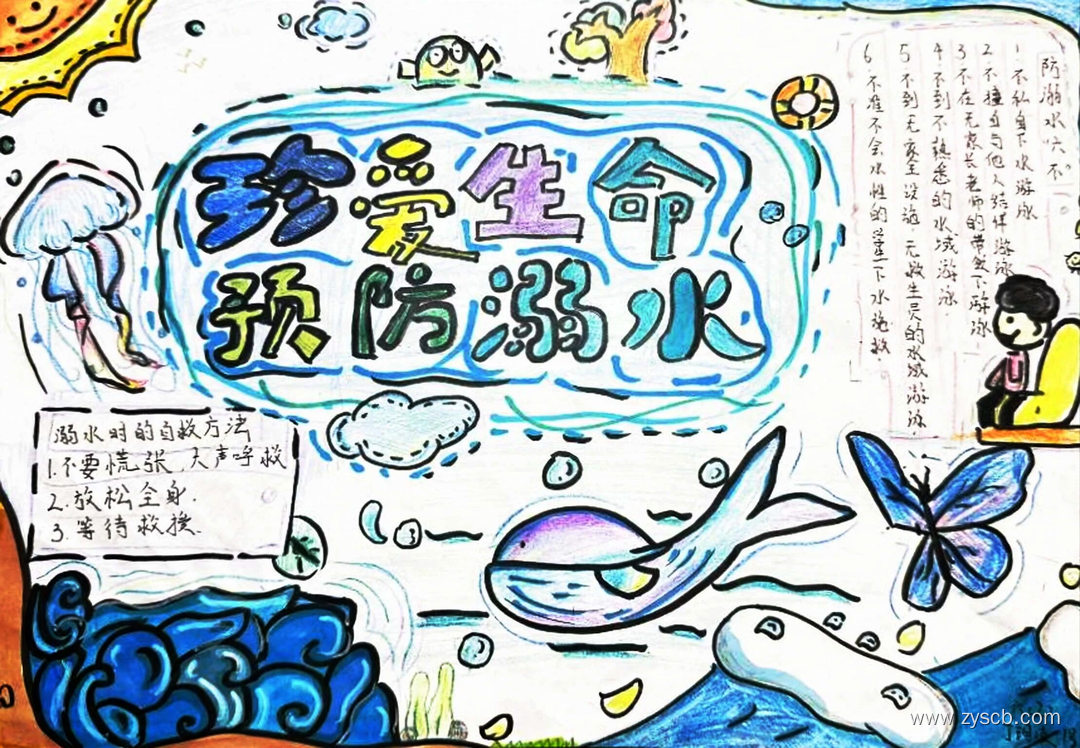 珍爱生命
预防溺水
防溺水六不
1 不私自下水游泳
2 不擅自与他人结伴游泳
3 不在无家长老师的带领下游泳
4 不到不熟悉的水域游泳
5 不到无安全设施 无救生员的水域游泳
6 不准不会水性的 下水施救
溺水时的自救方法
1.不要慌张,大声呼救
2.放松全身.
3.等待救援.
www.zyscb.com